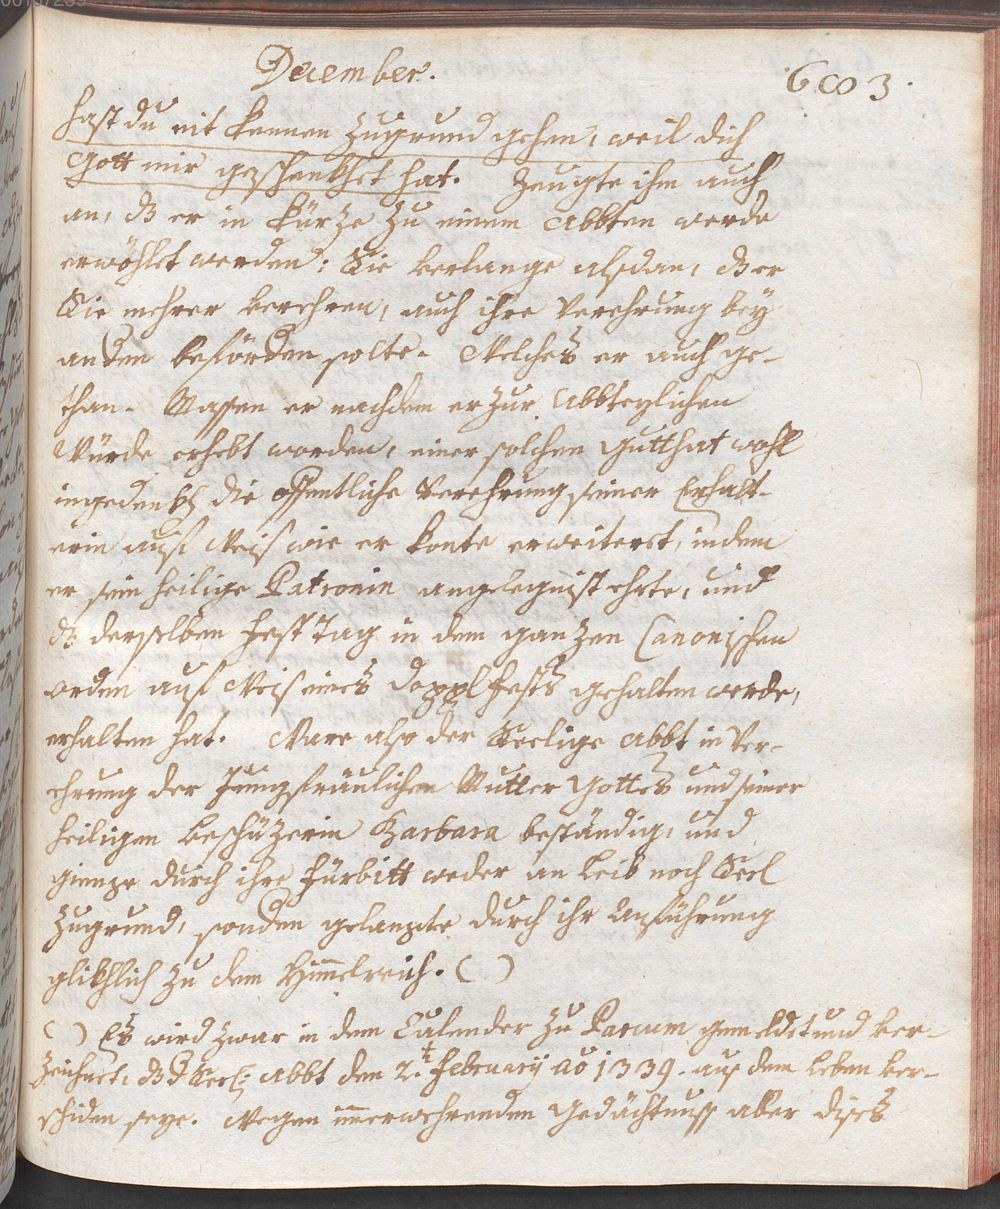 December. 603.
hast du nit kennen zugrund gehen, weil dich
Gott mir geschenkhet hat. Zeugte ihm auch
an, dz er in kürze zu einem Abbten werde
erwöhlet werden: Sie verlange alsdan, dz er
Sie mehrer verehren, auch ihre Verehrung bey
anderen beförderen solte. Welches er auch ge-
than. Massen er nachdem er zur Abbteylichen
Würde erhebt worden, einer solchen gutthat wohl
ingedenkh die offentliche Verehrung seiner Erhalt-
erin auf Weis wie er konte erweiteret, indem
er sein heilige Patronin angelegnist ehrte, und
dz derselben fest Tag in dem ganzen Canonischen
orden auf Weis eines doppl fests gehalten werde,
erhalten hat. Ware also der Seelige Abbt in Ver-
ehrung der Jungfräulichen Mutter Gottes und seiner
heiligen beschüzerin Barbara beständig, und
gienge durch ihre fürbitt weder an Leib noch Seel
zugrund, sonderen gelangte durch ihr anführung
glikhlich zu dem Himmelreich. ( )
( ) Es wird zwar in dem Calender zu Parcum gemeldet und ver-
zeichnet, dz d Seel: Abbt den 2.t february ao 1339. aus dem Leben ver-
schiden seye. Wegen immerwehrenden gedächtnuss aber dises